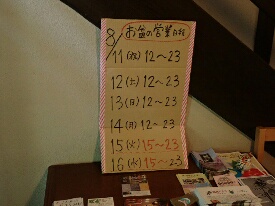 8/
お盆の営業日程
11(祝) 12〜23
12(土) 12〜23
13(日) 12〜23
14(月) 12〜23
15(火) 15〜23
16(水) 15〜23